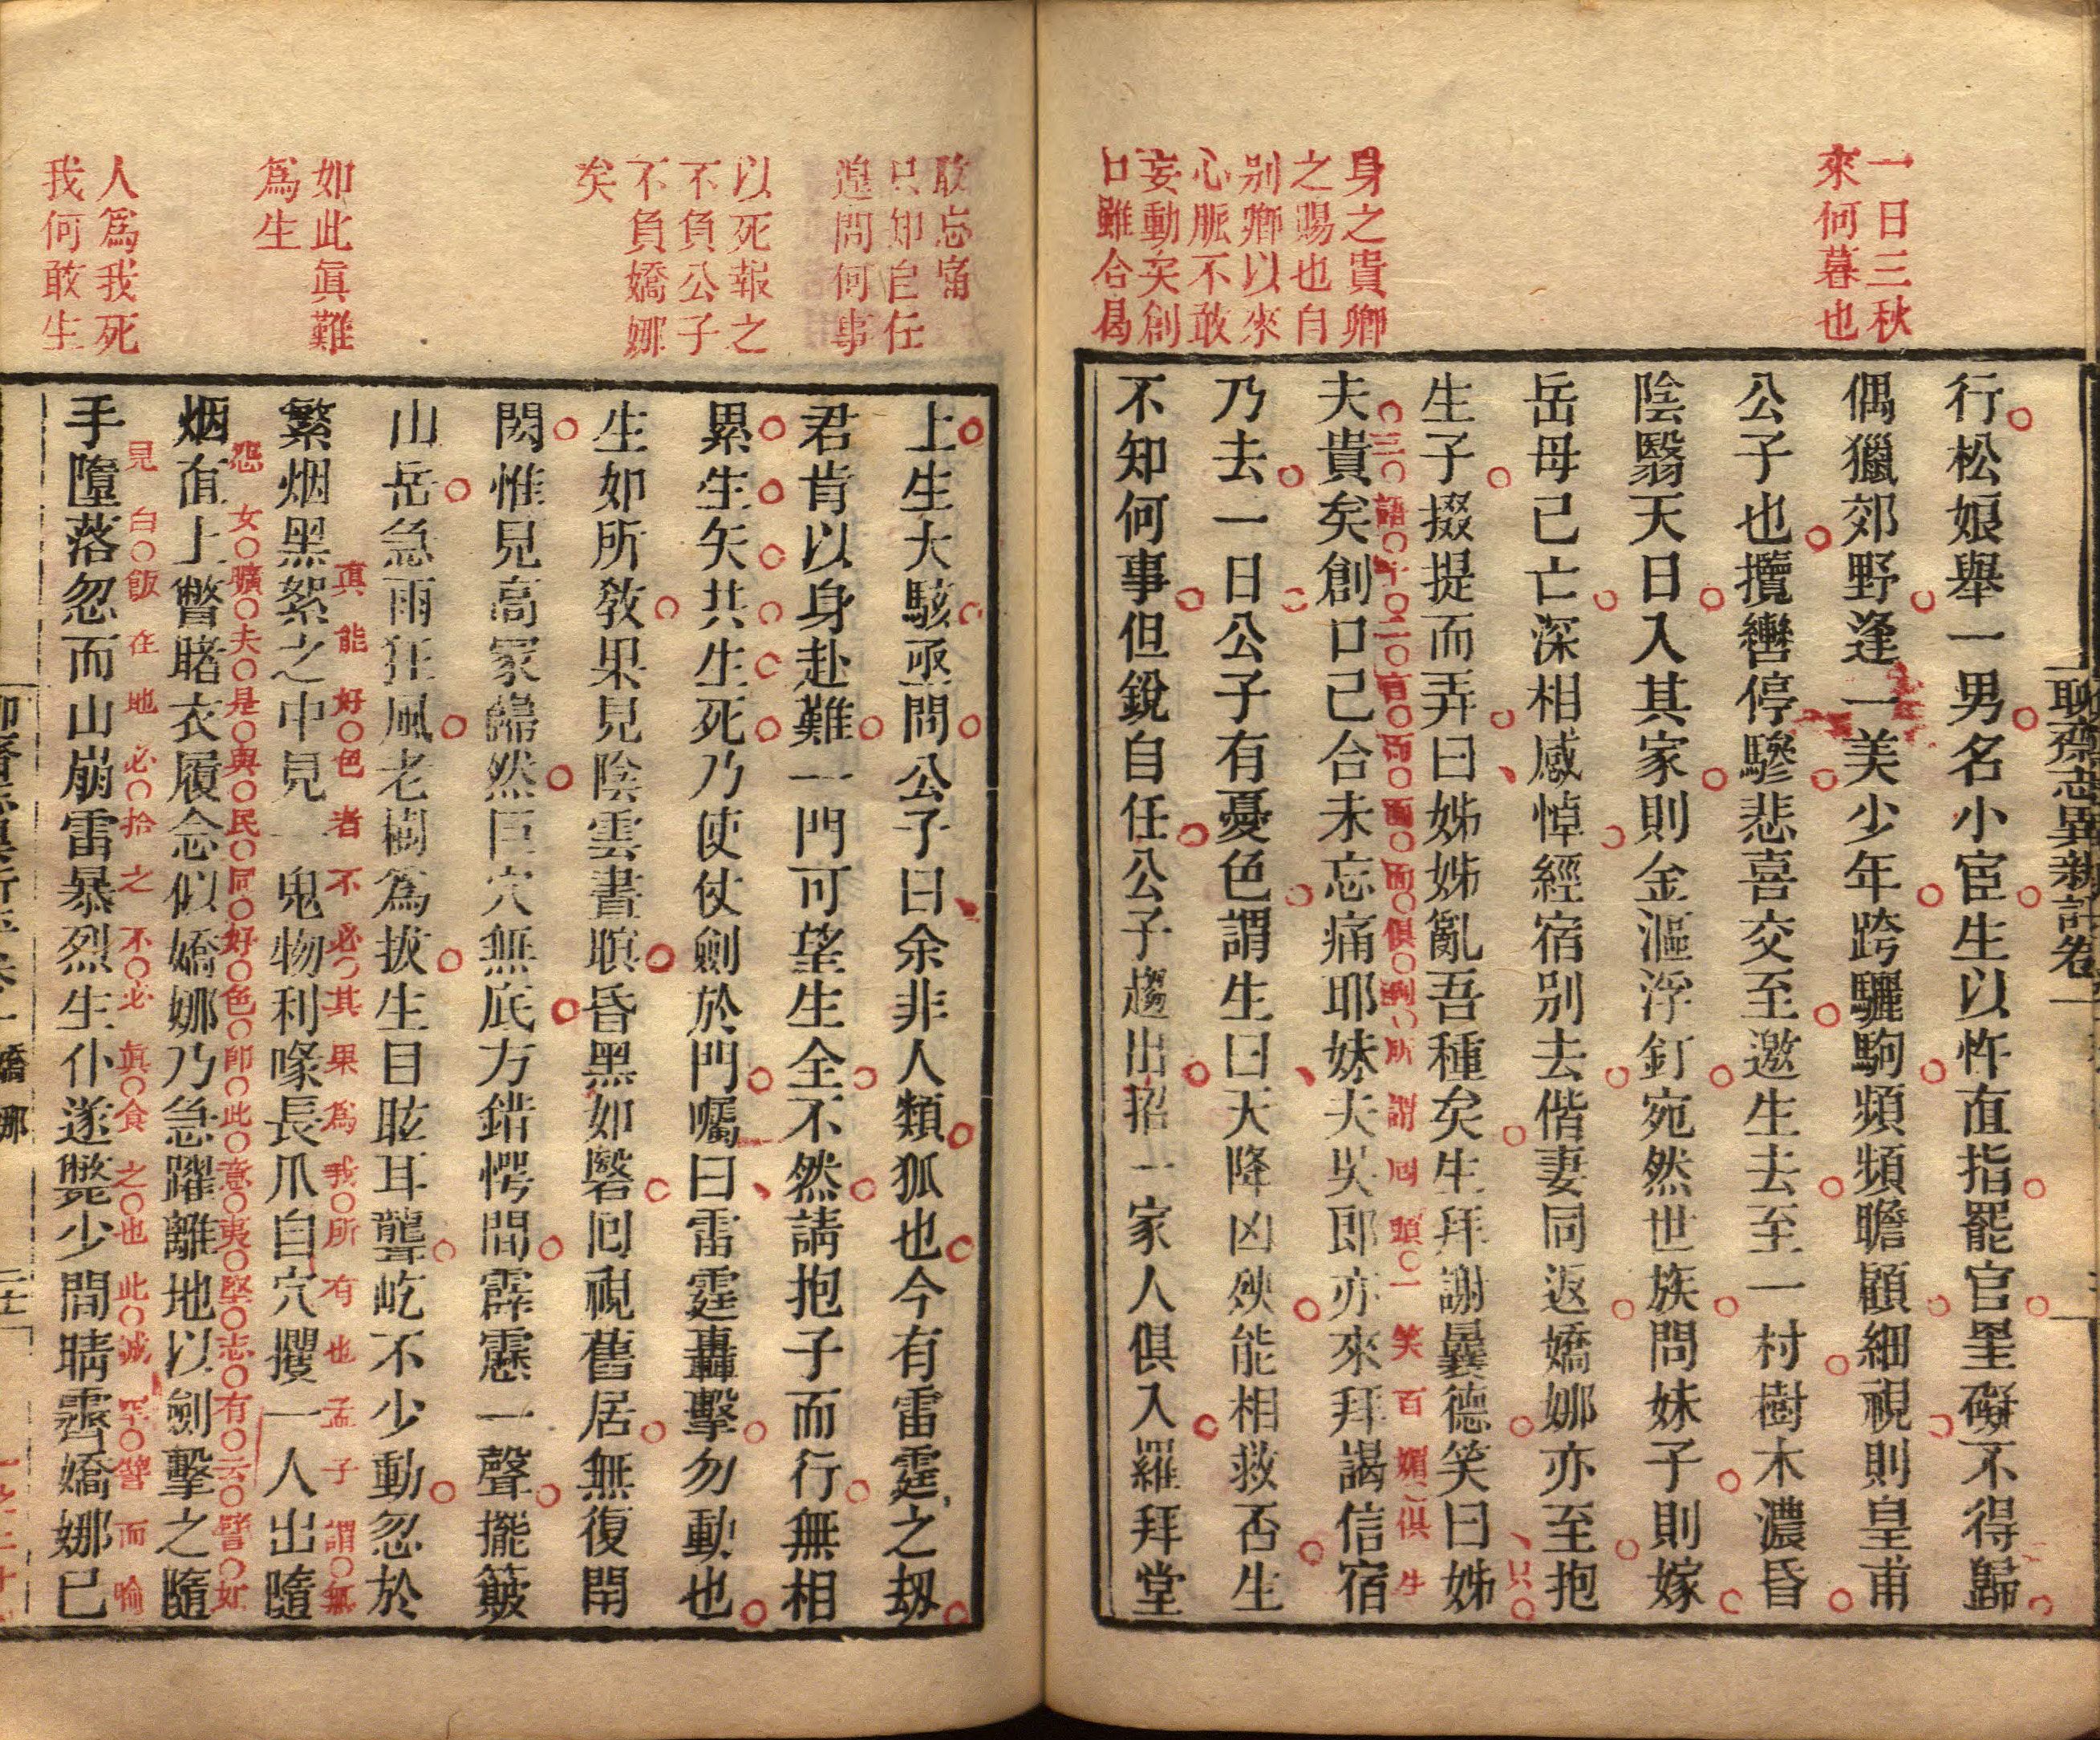 聊齋志異新評卷一
一日三秋
來何暮也
身之貴卿
之賜也自
別卿以來
心脈不敢
妄動矣創
口雖合曷
行松娘舉一男名小宦生以忤直指罷官罣礙不得歸
偶獵郊野逢一美少年跨驪駒頻頻瞻顧細視則皇甫
公子也攬轡停驂悲喜交至邀生去至一村樹木濃昏
陰翳天日入其家則金漚浮釘宛然世族問妹子則嫁
岳母已亡深相感悼經宿別去偕妻同返嬌娜亦至抱
生子掇提而弄曰姊姊亂吾種矣生拜謝曩德笑曰姊
夫貴矣創口已合未忘痛耶妹夫吳郎亦來拜謁信宿
乃去一日公子有憂色謂生曰天降凶殃能相救否生
不知何事但銳自任公子趨出招一家人俱入羅拜堂
敢忘痛
只知自任
遑問何事
以死報之
不負公子
不負嬌娜
矣
如此眞難
爲生
人爲我死
我何敢生
上生大駭亟問公子曰余非人類狐也今有雷霆之刼
君肯以身赴難一門可望生全不然請抱子而行無相
累生矢共生死乃使仗劍於門囑曰雷霆轟擊勿動也
生如所敎果見陰雲晝瞑昏黑如磬囘視舊居無復閈
閎惟見高冢巋然巨穴無底方錯愕間霹靂一聲擺簸
山岳急雨狂風老樹爲拔生目眩耳聾屹不少動忽於
繁烟黑絮之中見一鬼物利喙長爪自穴攫一人出隨
眞能好色者不必其果爲我所有也孟子謂無
烟直上瞥睹衣履念似嬌娜乃急躍離地以劍擊之隨
怨女曠夫是與民同好色卽此意夷堅志有云譬如
手墮落忽而山崩雷暴烈生仆遂斃少間晴霽嬌娜已
見白飯在地必拾之不必眞食之也此誠罕譬而喻
嬌娜